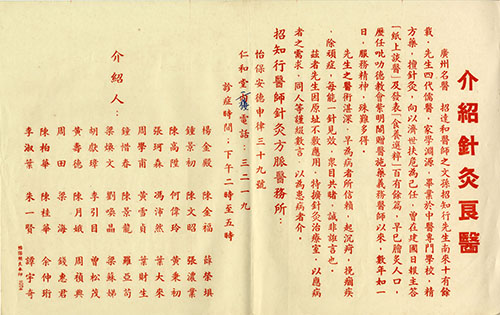 介紹針灸良醫
廣州名醫 招達和醫師之文孫招知行先生南來十有餘
載，先生四代儒醫，家學淵源，畢業於中醫專門學校，精
方藥，擅針灸，向以濟世扶危為己任，曾在建國日報主答
「紙上談醫」及發表「食養選粹」百有餘篇，早已膾炙人口，
歷任吡叻德教會紫明閣贈醫施藥義務醫師以來，數年如一
日，服務精神，殊難多得。
先生之醫術湛深，早為病者所信賴，起沉疴，挽痼疾
，除頑症，每能一針見效，衆目共睹，誠非諛言也。
茲者先生因原址不敷應用，特擴針灸治療室，以應病
者之需求，同人等謹綴數言，以為患病者介。
招知行醫師針灸方脈醫務所：
怡保安德申律三十九號
仁和堂二樓電話：三二一九
診症時間：下午二時至五時
介紹人：
楊金殿 陳金福 薛榮填
鍾景初 陳文昭 張濃業
陳高陞 何偉玲 黃秉初
張珂森 馮沛然 葉大來
周學甫 黃雪貞 葉財生
鍾惜春 陳景龍 羅亞蒟
梁煥文 劉喚晶 梁蘇娣
胡獻璋 李引目 曾松茂
黃壽德 陳月娥 周禎興
周田 梁海 錢惠君
陳柏華 陳桂華 余仲珩
李淑葉 朱一賢 譚宇奇